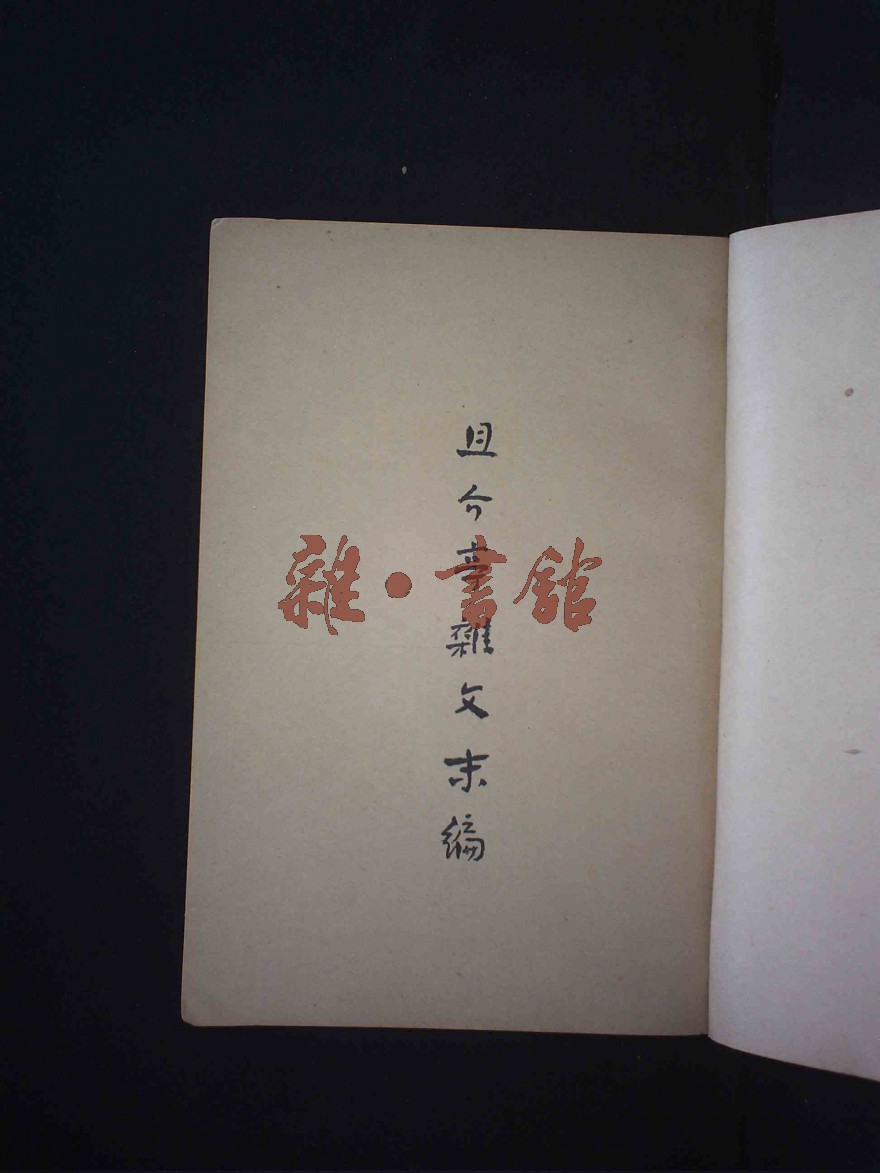 且介亭雜文末編
雜·書館